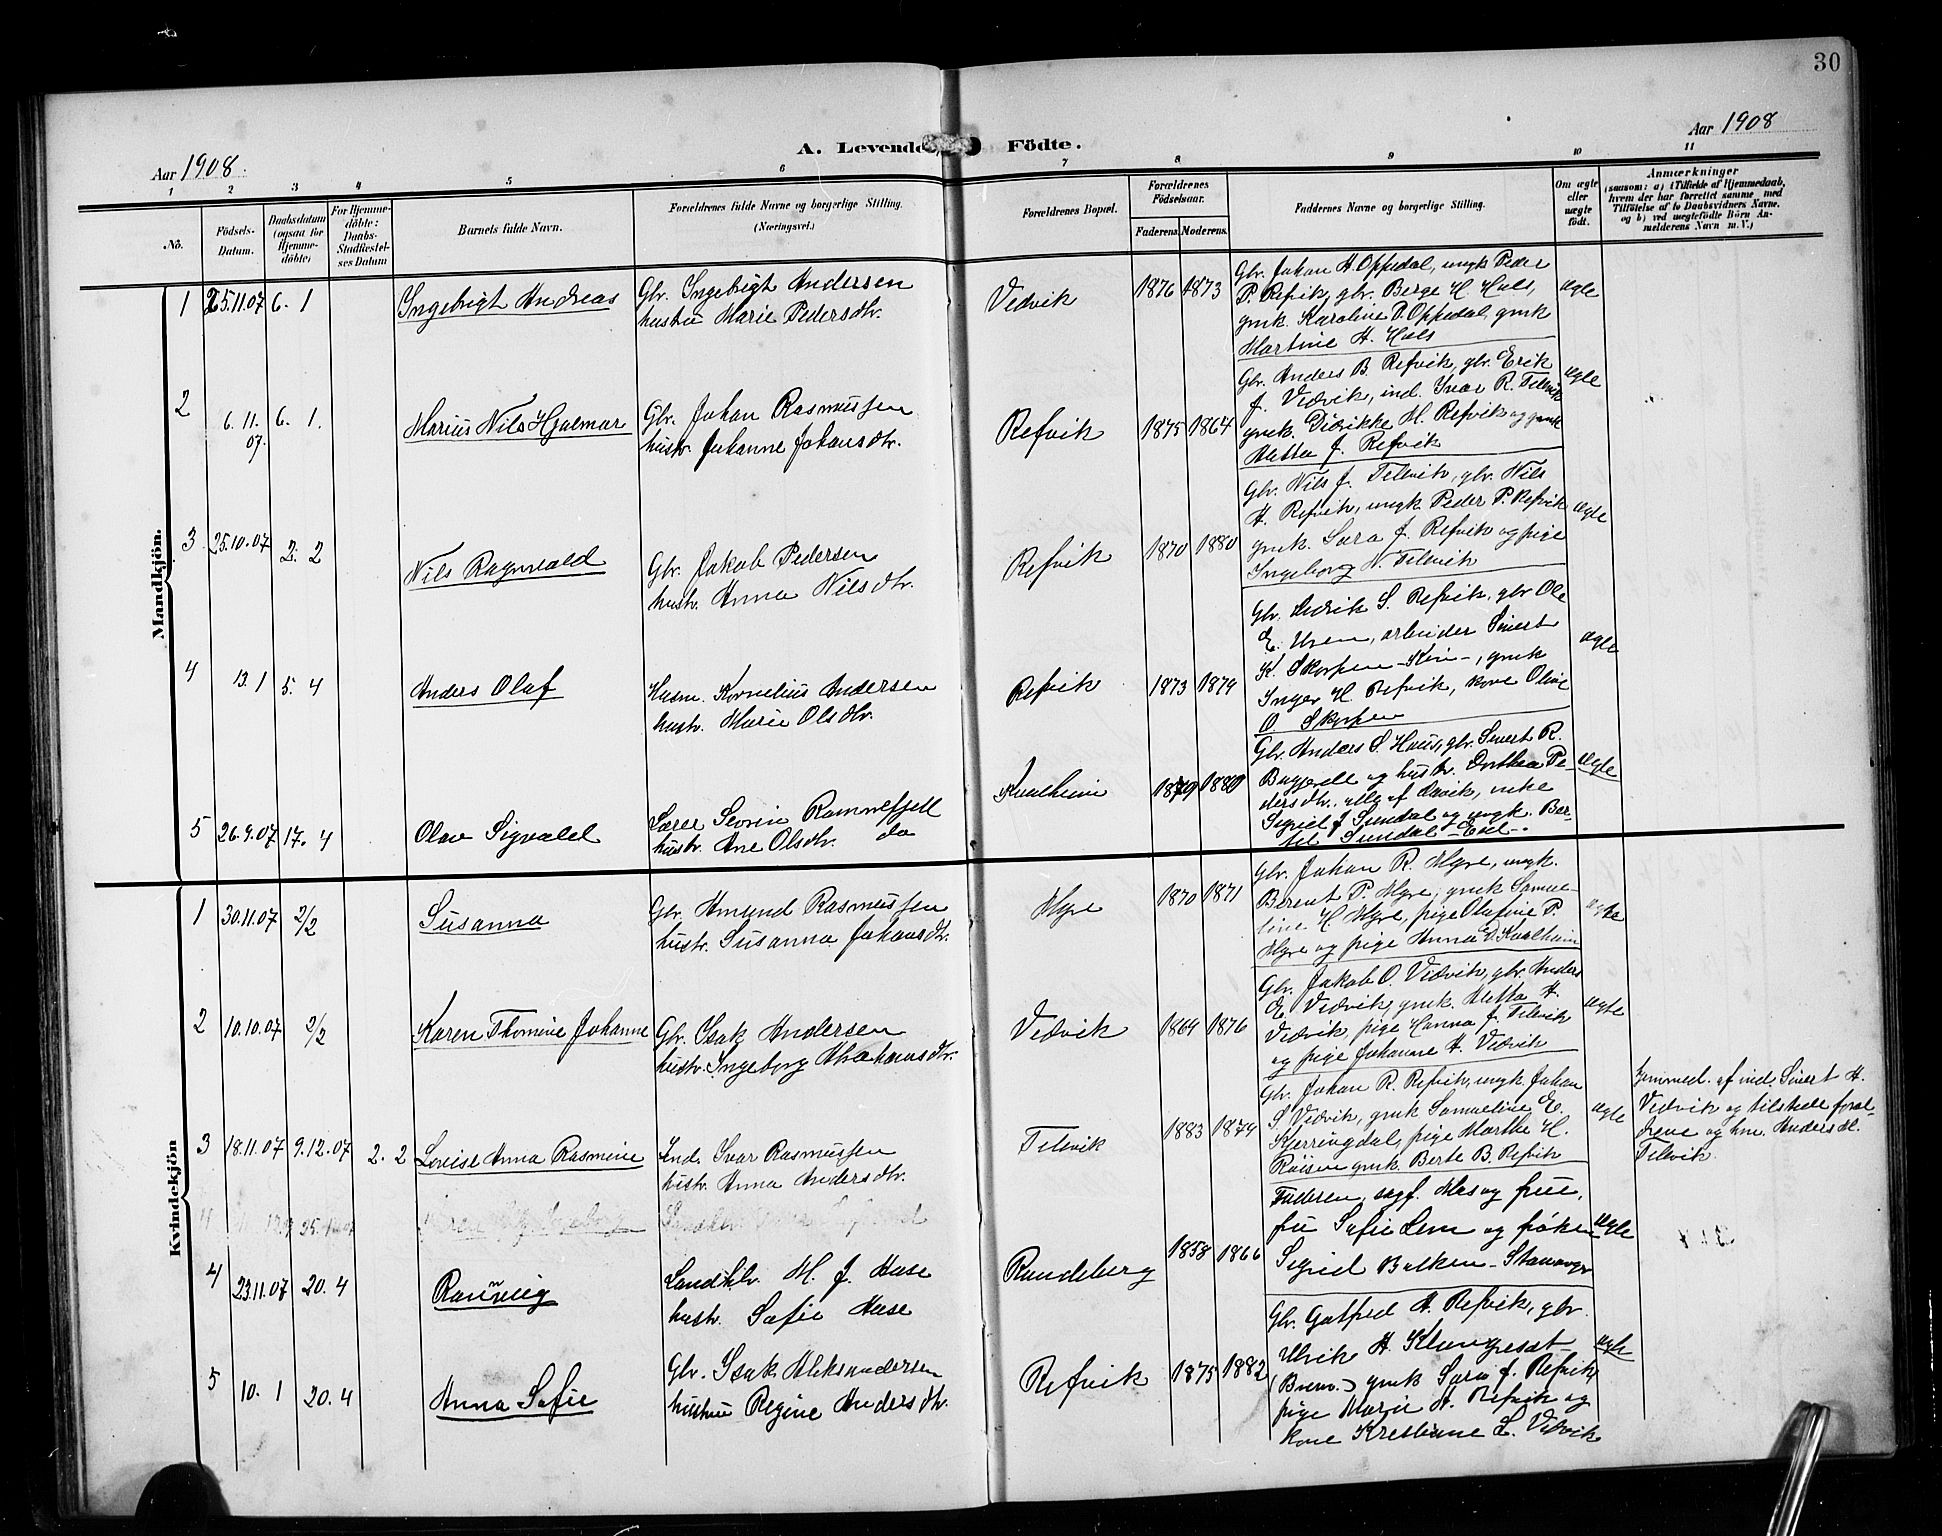 30
Aar 1908.
A. Levende Födte.
Aar 1908
1 2 3 4 5 6 7 8 9 10 11
No.
Födsels-Datum.
Daabsdatum (ogsaa for Hjemmedöbte)
For Hjemmedöbte: Daabs-Stadfæstelses Datum
Barnets fulde Navn.
Forældrenes fulde Navne og borgerlige Stilling.
(Næringsvei.)
Forældrenes Bopæl.
Forældrenes Födselsaar.
Faderens. Moderens.
Faddernes Navne og borgerlige Stilling.
Om ægte eller uægte födt.
Anmærkninger
(saasom: a) i Tilfælde af Hjemmedaab,
hvem der har forrettet samme med
Tilföielse af to Daabsvidners Navne.
og b) ved uægtefödte Börn An-
melderens Navn m. V.)
Mandkjön.
1 25.11.07 6. 1 Ingebrigt Andreas
Gbr. Ingebrigt Andersen
hustru Marie Pedersdtr.
Vedvik 1876 1873
Gbr. Johan A. Oppedal, ungk. Peder
P. Refvik, gbr. Berge H. Hals,
gmk. Karoline P. Oppedal, gmk
Martine H. Hals
ægte
2 6. 11. 07. 6. 1. Marius Nils Hjalmar
Gbr. Johan Rasmussen
hustr. Johanne Johansdtr.
Refvik 1875 1864
Gbr. Anders B. Refvik, gbr. Erik
J. Vedvik, ind. Ivar R. Tellvik
gmk. Didrikke M. Refvik og gmk
Aletta J. Refvik
ægte
3 25.10.07 2. 2 Nils Ragnvald
Gbr. Jakob Pedersen
hustr. Anna Nilsdtr.
Refvik 1870 1880
Gbr. Nils J. Tellvik, gbr. Nils
A. Refvik, ungk. Peder P. Refvik
gmk. Sara J. Refvik og pige
Ingeborg N. Tellvik
ægte
4 13. 1 5. 4 Anders Olaf
Husm. Kornelius Andersen
hustr. Marie Olsdtr.
Refvik 1873 1879
Gbr. Didrik S. Refvik, gbr Ole
E. Uren, arbeider Sivert
K. Skorpen -Kin-, gmk
Inger H. Refvik, kone Oline
O Skorpen
ægte
5 26.9.07 17. 4 Olav Sigvald
Lærer Severin Rammefjell
hustr. Ane Olsdtr. do
Kvalheim 1879 1880
Gbr. Anders S. Haus, gbr. Sivert R.
og hustr. Dorthea Pe-
dersdtr. alle af Davik, enke
Sigrid J Sundal og ungk. Ber-
tel Sundal -Eid-.
ægte
Kvindekjön
1 30.11.07 2/2 Susanna
Gbr. Amund Rasmussen
hustr. Susanna Johansdtr.
Myre 1870 1871
Gbr. Johan R. Myre, ungk.
Berent P. Myre, gmk Samue-
line H. Myre, pige Olufine P.
Myre og pige Anna D. Kvalheim
ægte
2 10.10.07 2/2 Karen Thomine Johanne
Gbr. Isak Andersen
hustr. Ingeborg Abrahamsdtr.
Vedvik 1864 1876
Gbr. Jakob O. Vedvik, gbr. Anders
E. Vedvik, gmk. Aletta A.
Vedvik, pige Hanna J. Tellvik
og pige Johanne A. Vedvik
ægte
3 18.11.07 9.12.07 2. 2 Lovise Anna Rasmine
Ind. Ivar Rasmussen
hustr. Anna Andersdtr.
Tellvik 1883 1879
Gbr. Johan R. Refvik, ungk. Johan
S. Vedvik, gmk Samueline E.
Kjerringdal, pige Marthe H.
Röisen gmk. Berte B. Refvik
ægte
hjemmed. af ind. Sivert A.
Vedvik og tilstede foræl-
drene og hm. Anders M.
Tellvik.
4 23.11.07 20. 4 Rannveig
Landhdl. M. J. Aase
hustr. Sofie Aase
Randeberg 1858 1866
Faderen, sagf. Aas og frue,
fru Sofie Lem og fröken
Sigrid Bakken - Stavanger
ægte
5 10. 1 20. 4 Anna Sofie
Gbr. Isak Aleksandersen
hustru Regine Andersdtr.
Refvik 1875 1882
Gbr. Gotfred A. Refvik, gbr.
Ulrik A. Klungresæt
(Brem.) gmk Sara J. Refvik
pige Marie A. Refvik og
kone Kristiane L. Vedvik
ægte